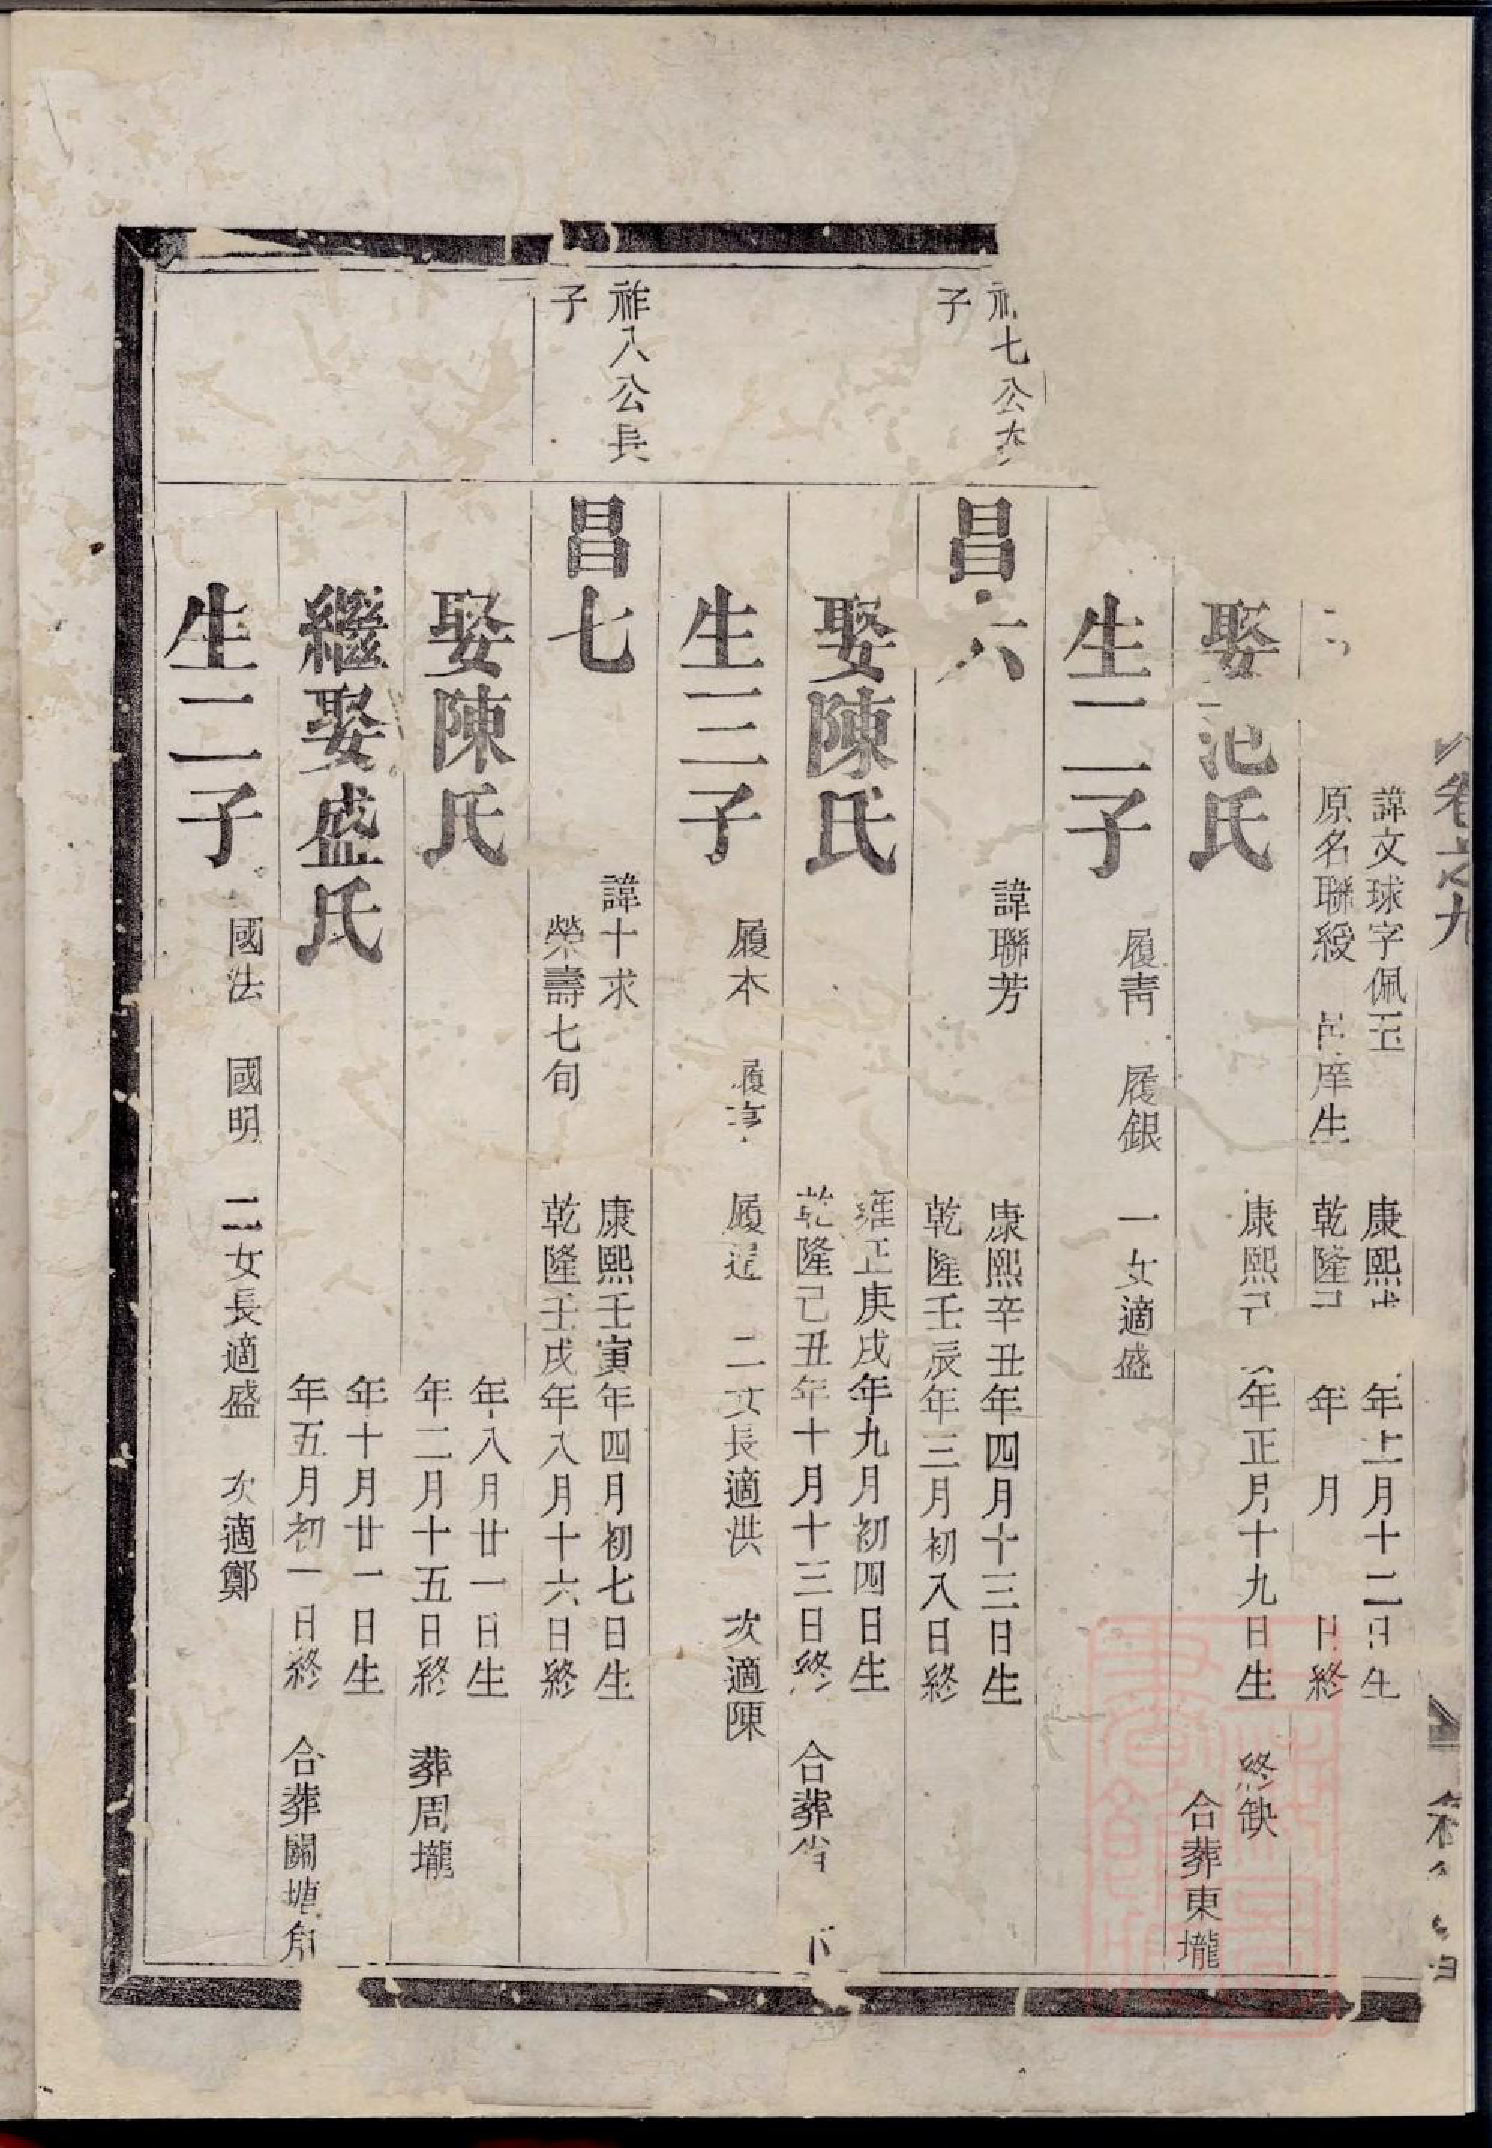 卷之九
諱文球字佩玉 康熙 年 月十二日生
原名聯綬 邑庠生 乾隆 年 月 日終
娶 氏 康熙 年正月十九日生 終缺
合葬東壠
生二子 履青 履銀 一女適盛
七公
子
昌六 諱聯芳 康熙辛丑年四月十三日生
乾隆壬辰年三月初八日終
娶陳氏 雍正庚戌年九月初四日生
乾隆己丑年十月十三日終 合葬
生三子 履本 履 履 二女長適洪 次適陳
祚八公長
子
昌七 諱十求 康熙壬寅年四月初七日生
榮壽七旬 乾隆壬戌年八月十六日終
娶陳氏 年八月廿一日生
年二月十五日終 葬周壠
繼娶盛氏 年十月廿一日生
年五月初一日終 合葬 塘角
生二子 國法 國明 二女長適盛 次適鄭